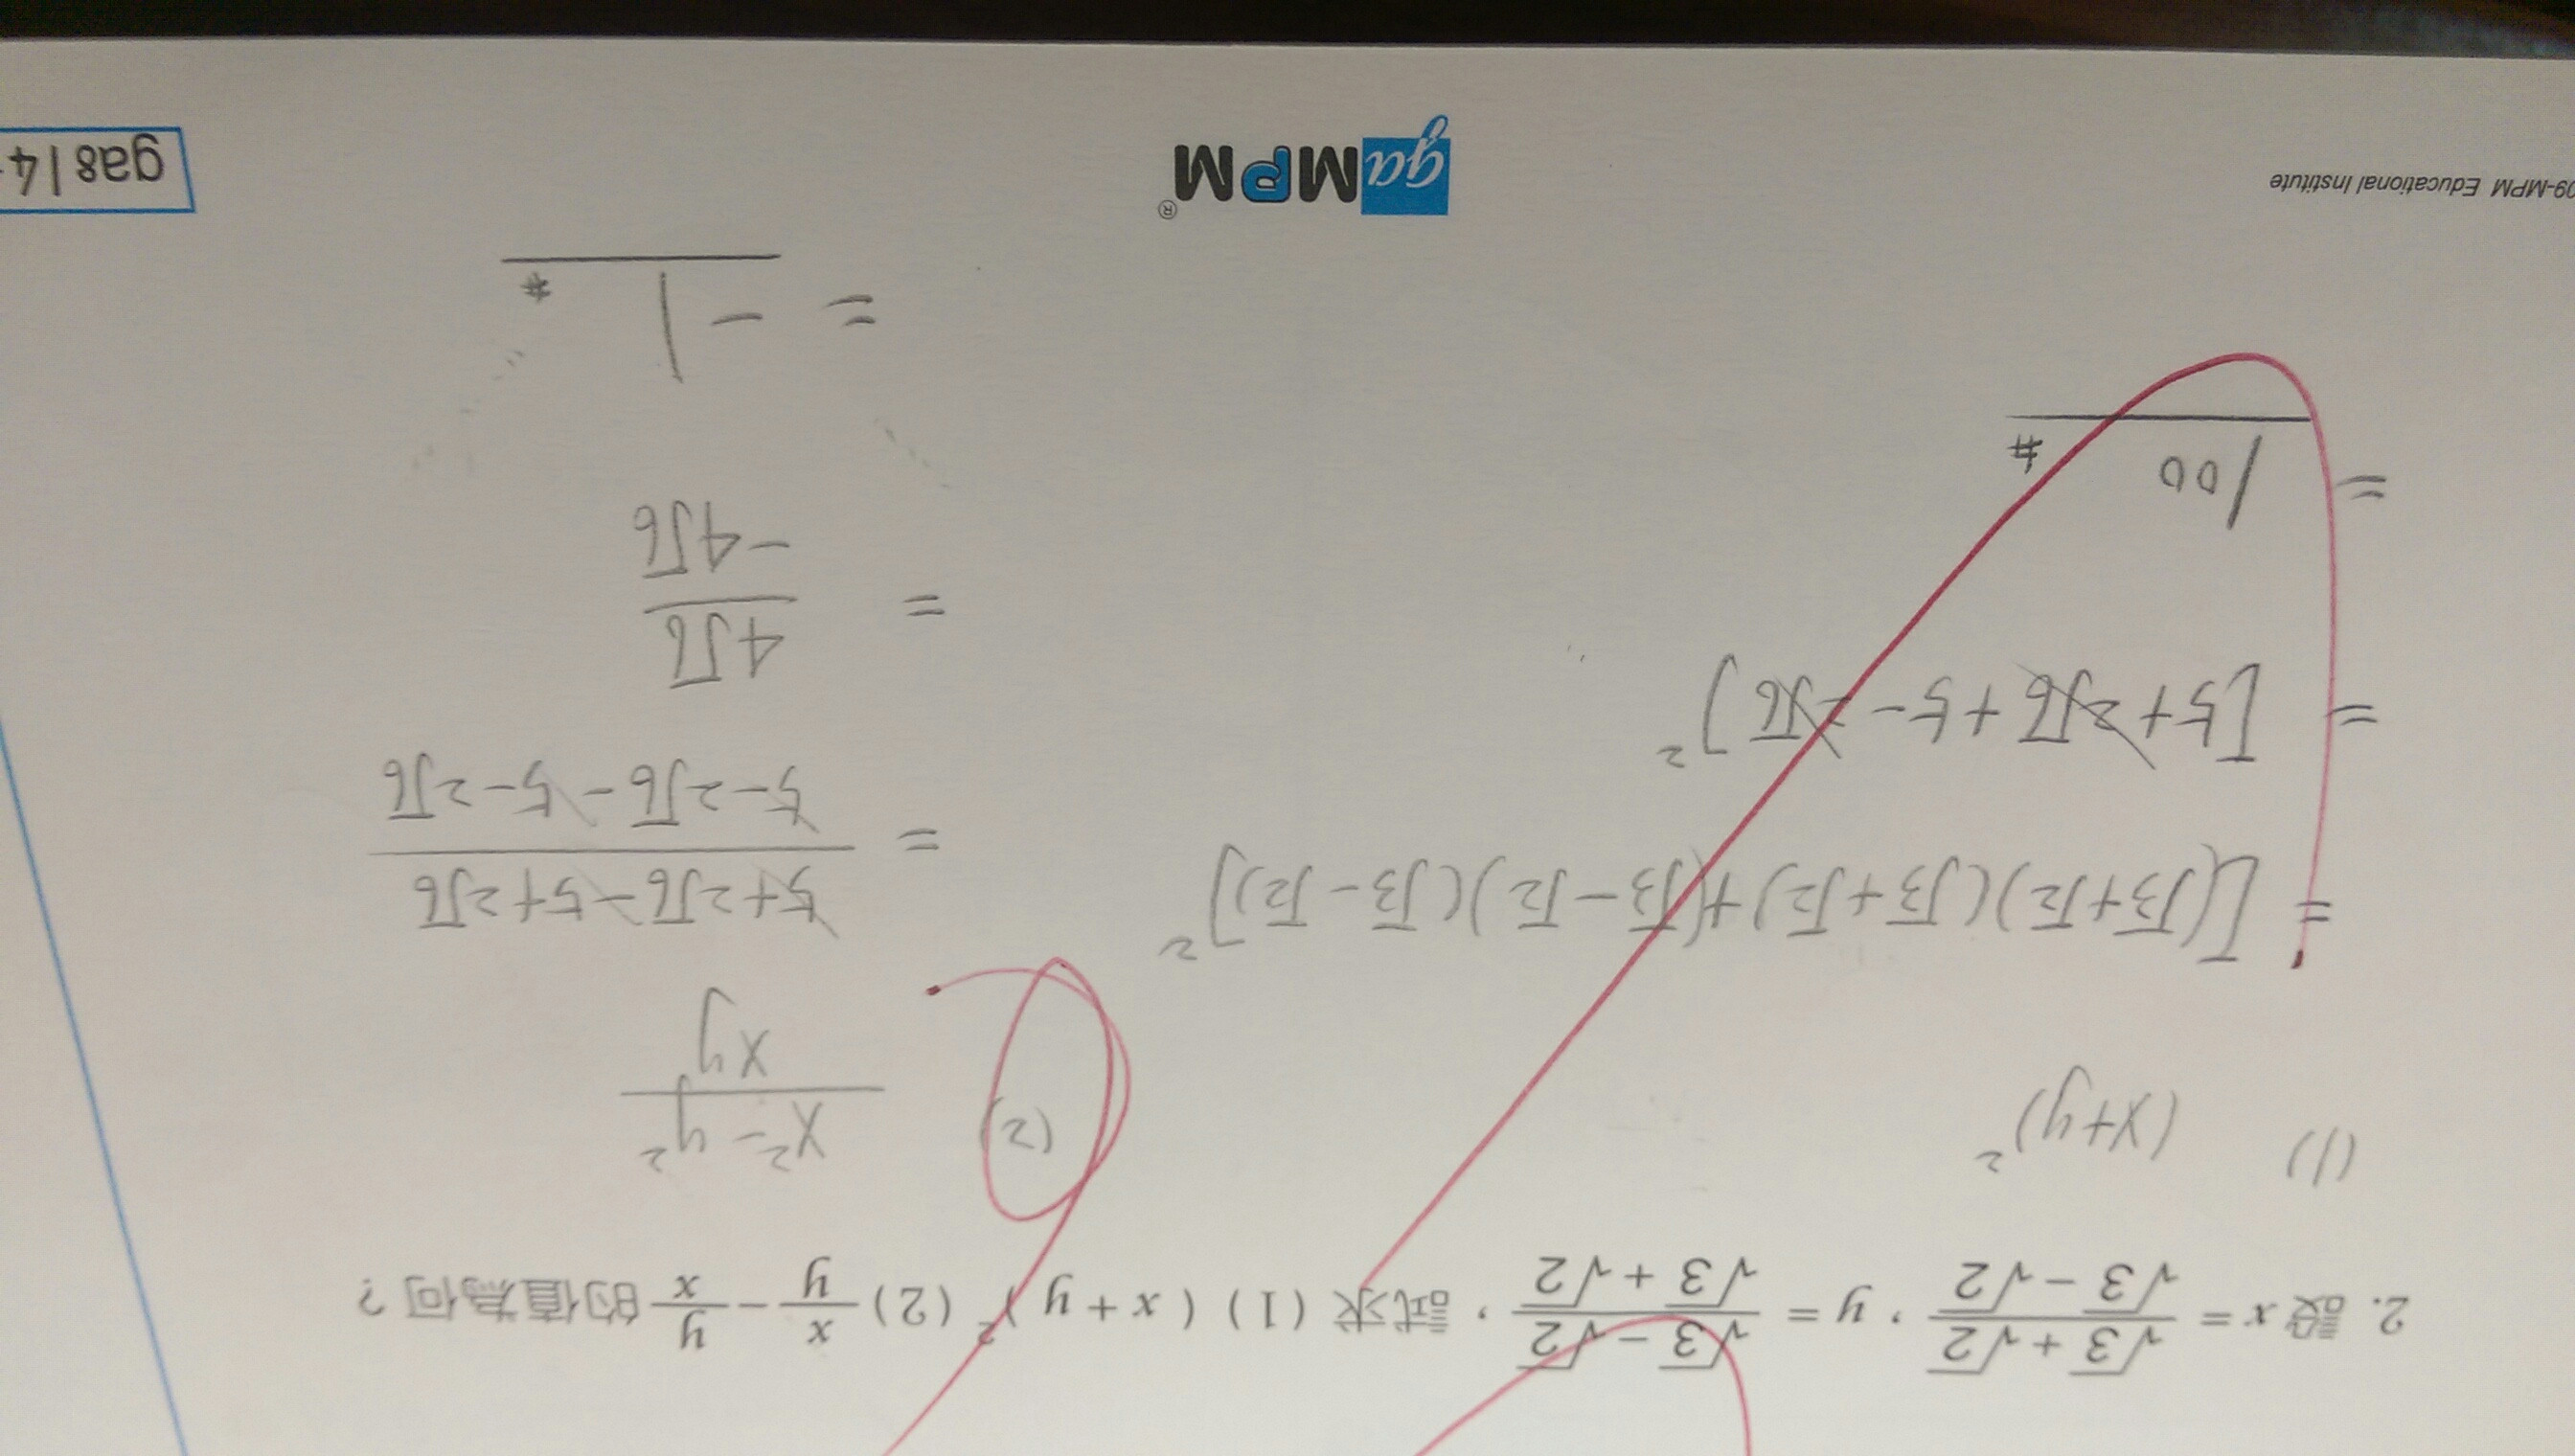 2. 設 x = (√3 + √2)/(√3 − √2)，y = (√3 − √2)/(√3 + √2)，試求 (1) ( x + y )² (2) x/y − y/x 的值為何？
(1) (x+y)²
= [(√3+√2)(√3+√2)+(√3−√2)(√3−√2)]²
= [5+2√6+5−2√6]²
= 100 #
(2) (x²−y²)/(xy)
= (5+2√6−5+2√6)/(5−2√6−5−2√6)
= 4√6/−4√6
= −1 #
09-MPM Educational Institute
gaMPM®
ga8 | 4